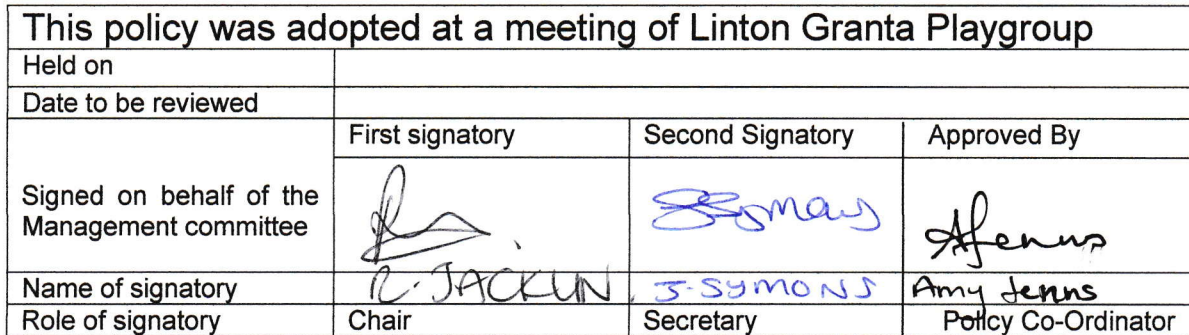 This policy was adopted at a meeting of Linton Granta Playgroup
Held on
Date to be reviewed
First signatory Second Signatory Approved By
Signed on behalf of the
Management committee
Name of signatory R. JACKLIN J. SYMONS Amy Jenns
Role of signatory Chair Secretary Policy Co-Ordinator